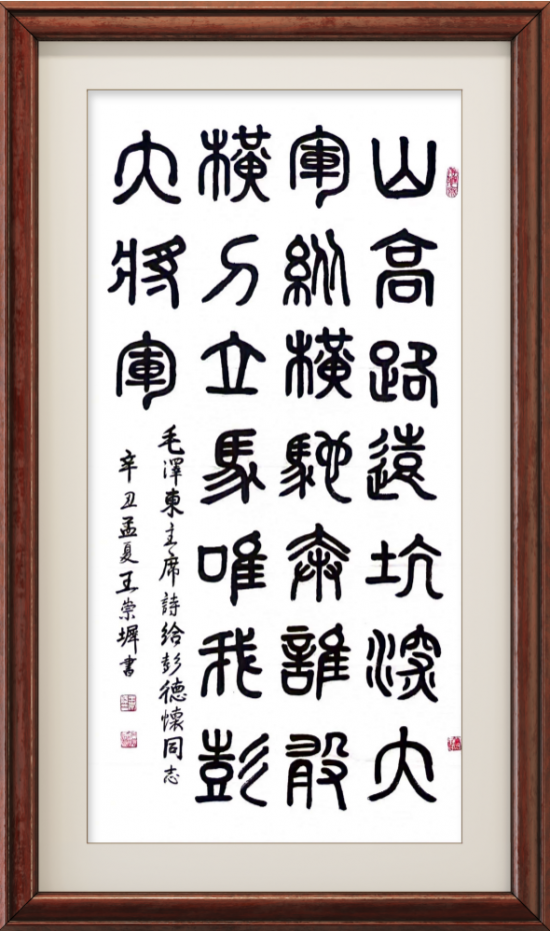 山高路遠坑深大
軍縱橫馳奔誰敢
橫刀立馬唯我彭
大將軍
毛澤東主席詩給彭德懷同志
辛丑孟夏王崇墀書